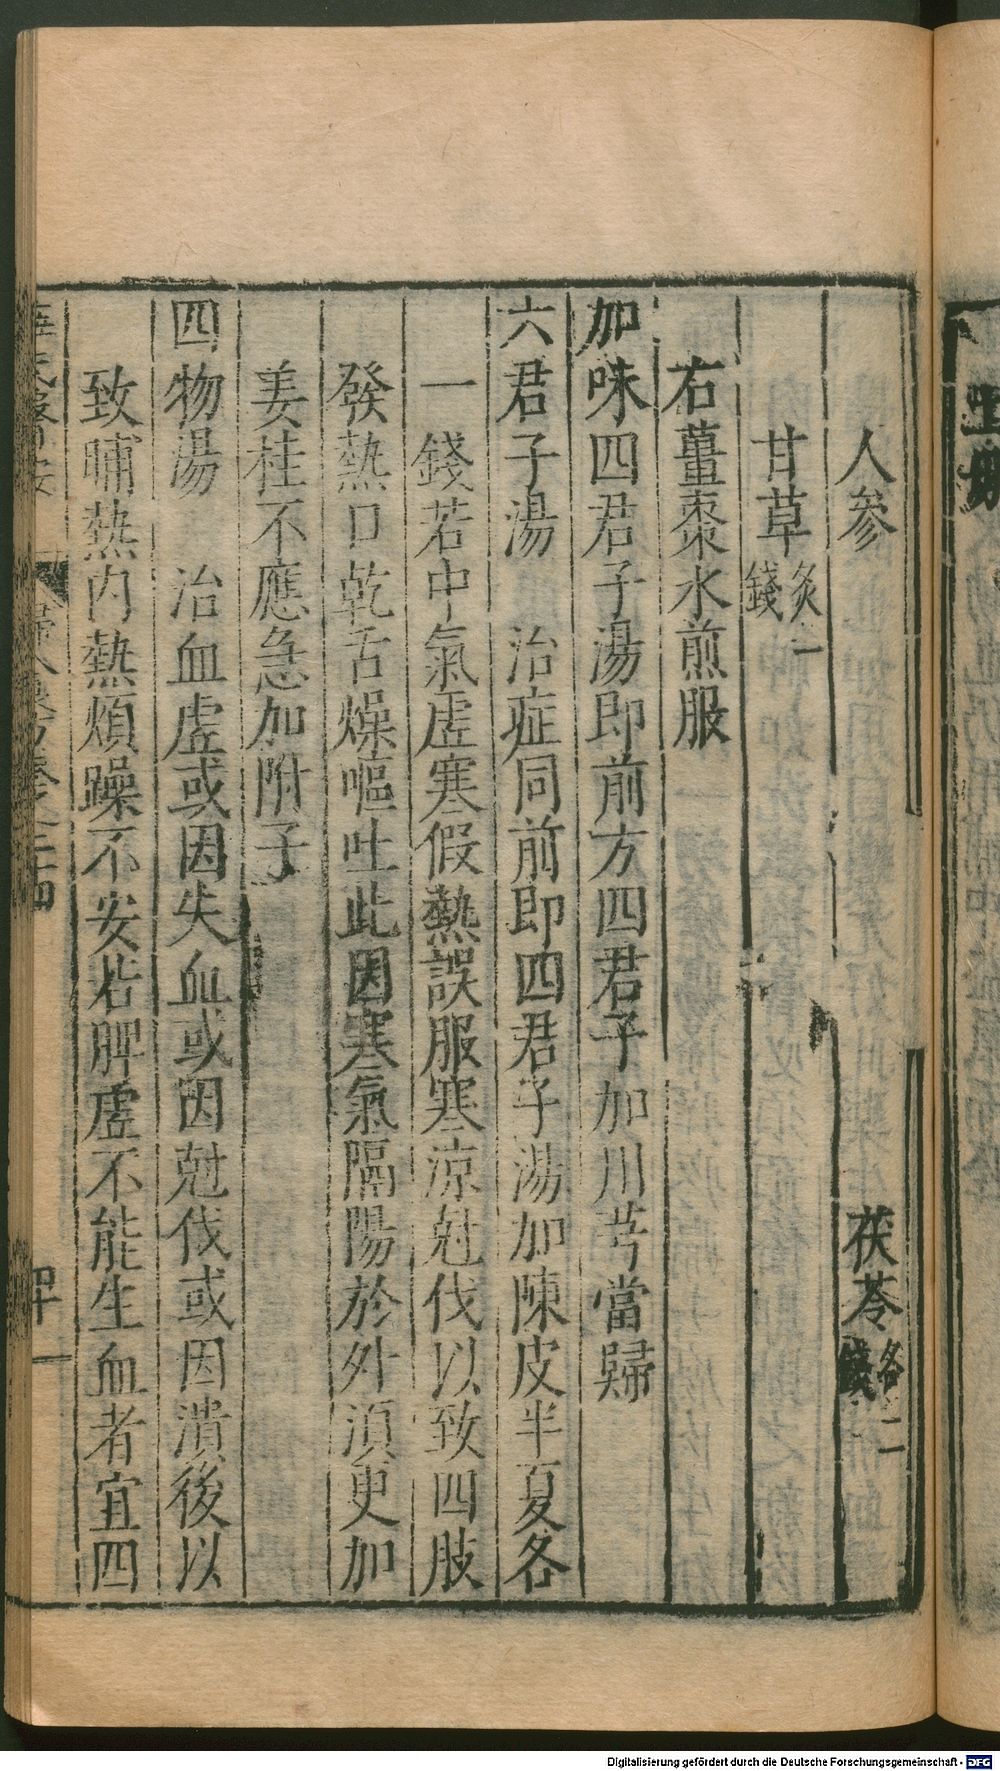 人參　茯苓各二錢
甘草炙一錢
右薑棗水煎服
加味四君子湯即前方四君子加川芎當歸
六君子湯　治症同前即四君子湯加陳皮半夏各
一錢若中氣虛寒假熱誤服寒涼尅伐以致四肢
發熱口乾舌燥嘔吐此因寒氣隔陽於外須更加
姜桂不應急加附子
四物湯　治血虛或因失血或因尅伐或因潰後以
致晡熱内熱煩躁不安若脾虛不能生血者宜四
四十一
Digitalisierung gefördert durch die Deutsche Forschungsgemeinschaft - DFG